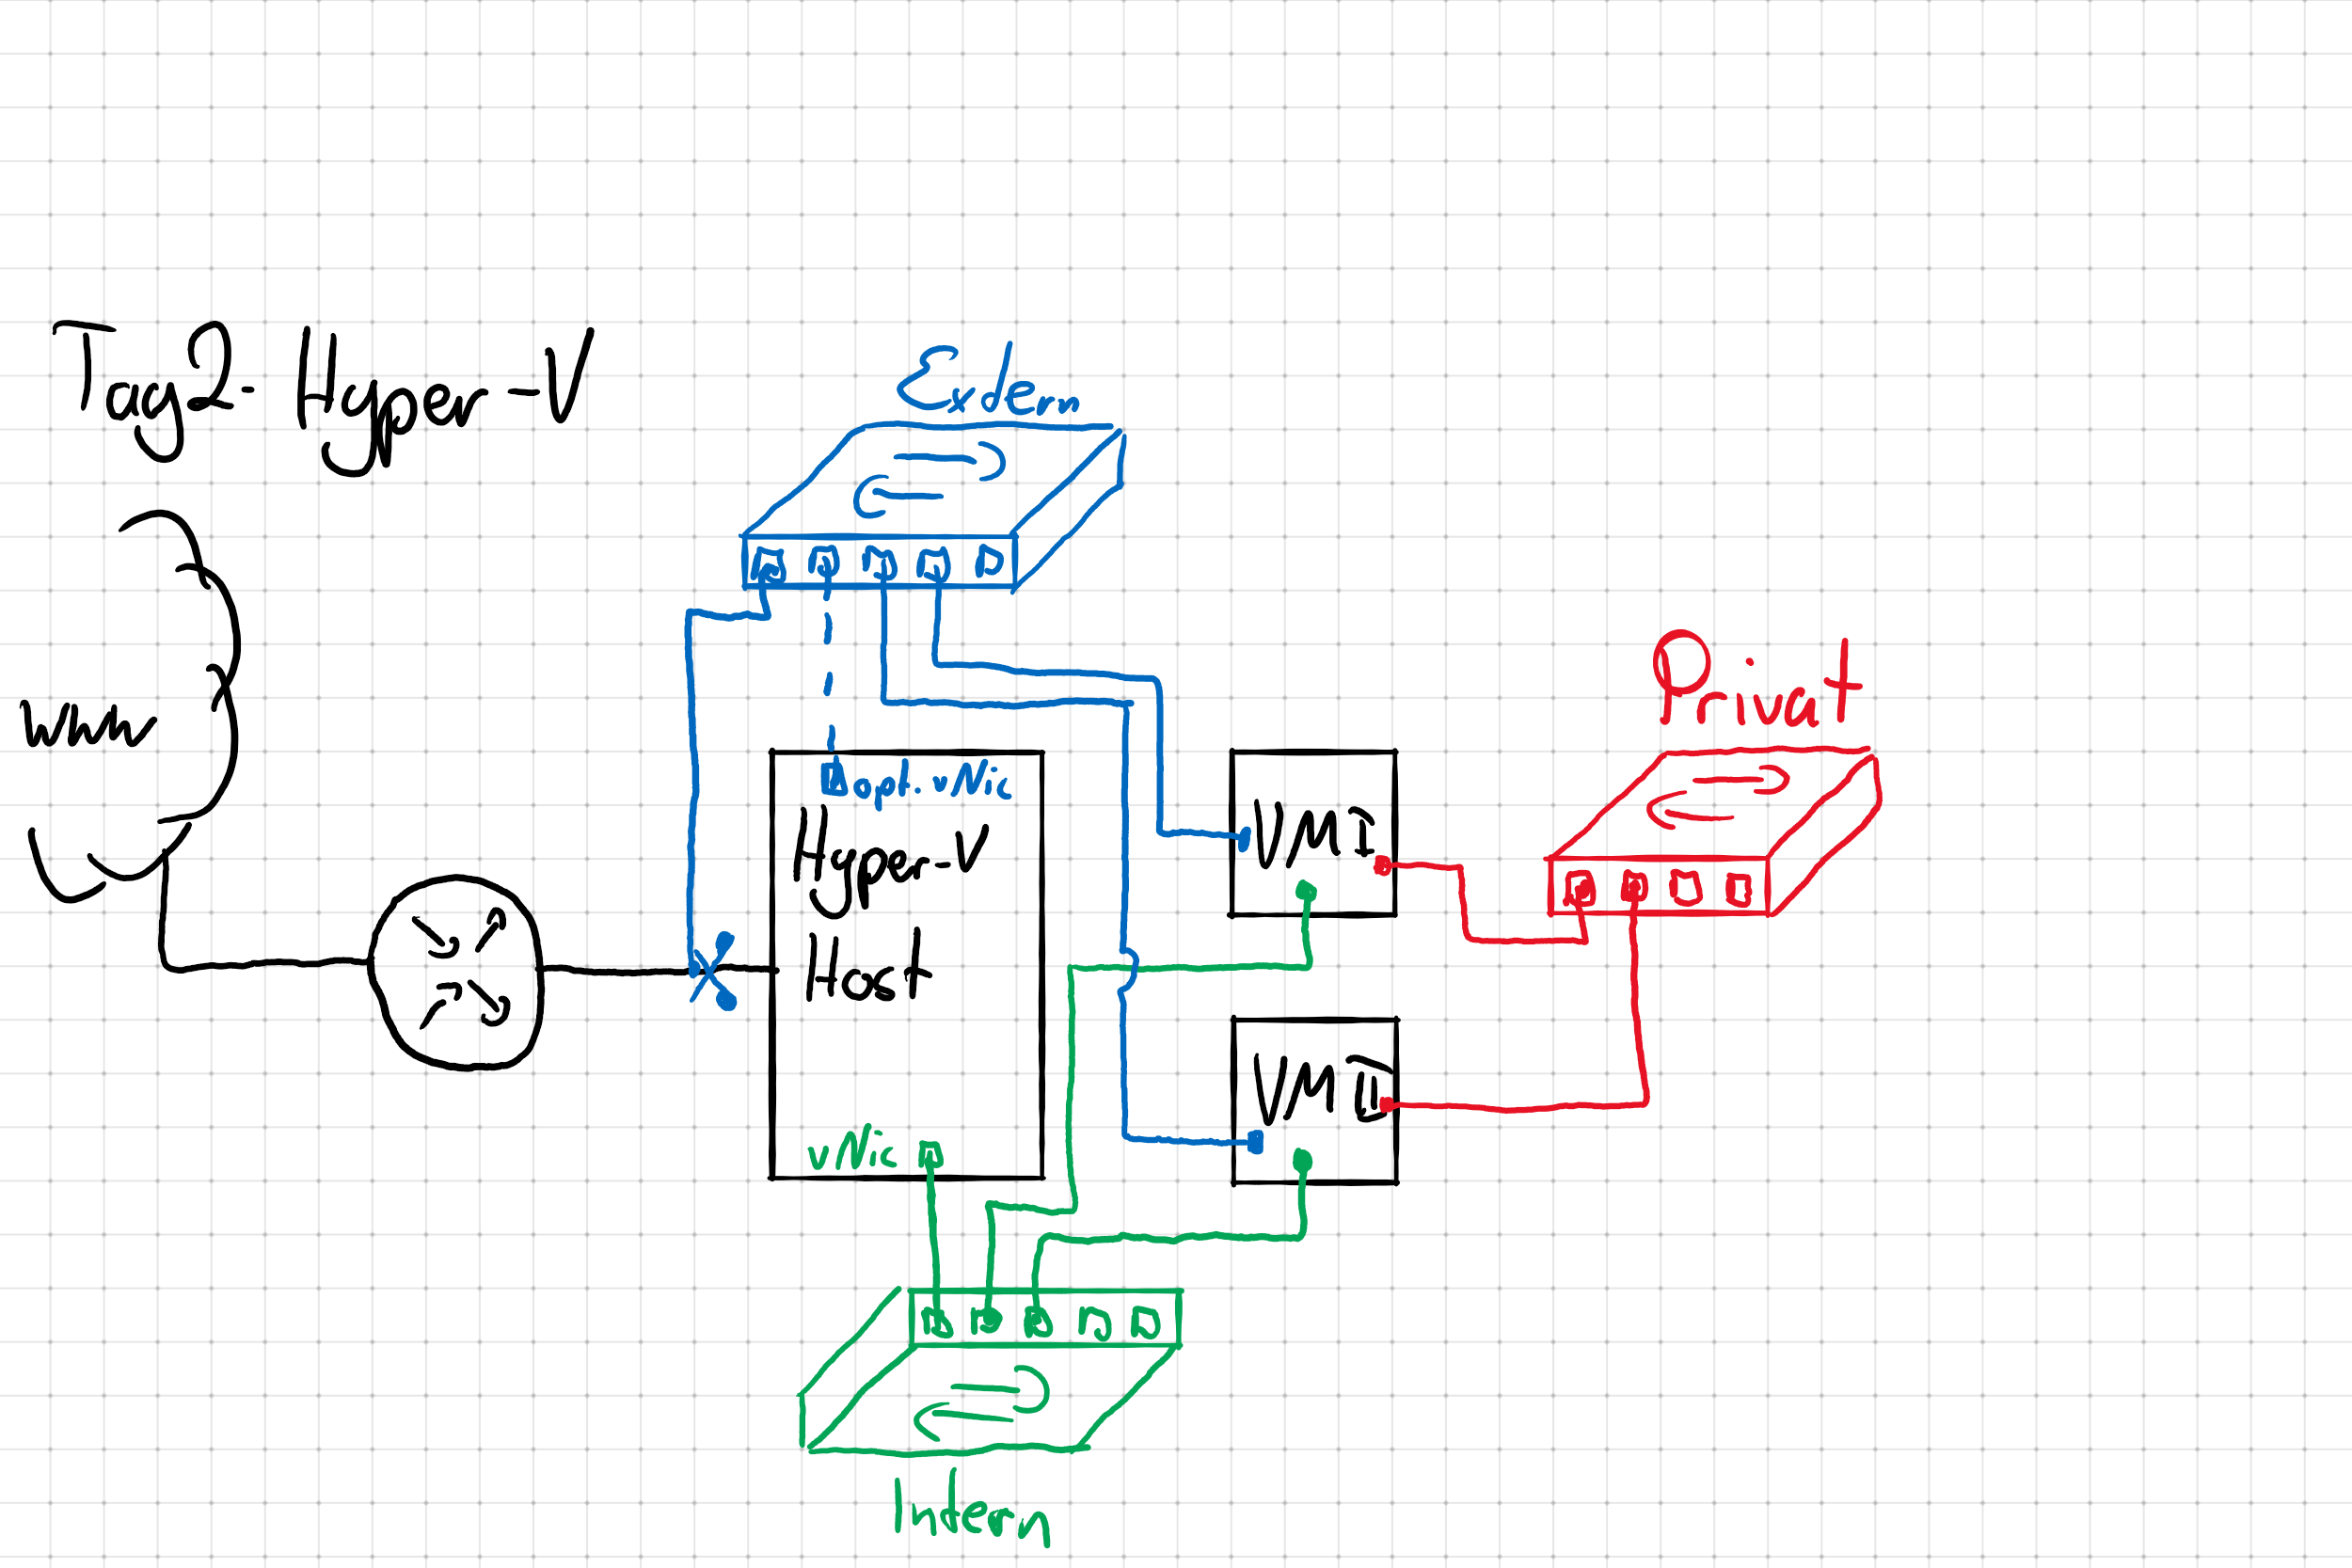 Tag 2 - Hyper-V
Extern
www
Opt. vNic
Hyper-V
Host
vNic
VM I
VM II
Privat
Intern